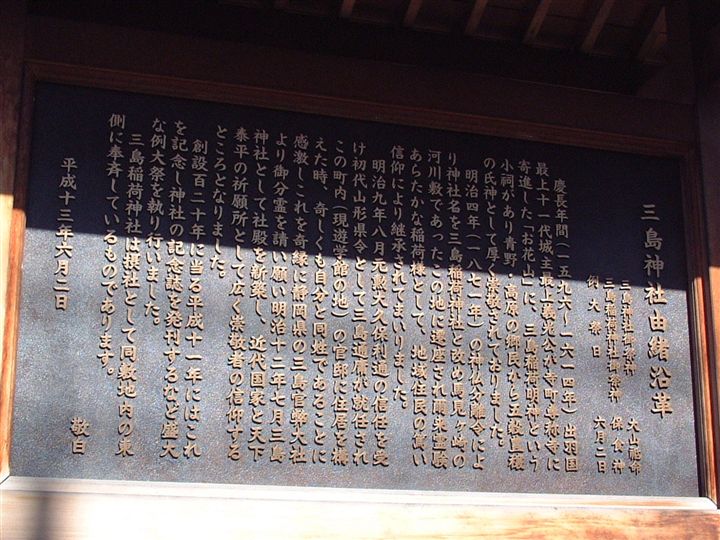 三島神社由緒沿革
三島神社御祭神 大山祇命
三島稲荷神社御祭神 保食神
例大祭日 六月二日
慶長年間(一五九六〜一六一四年)出羽国
最上十一代城主最上義光公が寺町専称寺に
寄進した「お花山」に、三島稲荷明神という
小祠があり青野・高原の郷民から五穀豊穣
の氏神として厚く崇敬されておりました。
明治四年(一八七一年)の神仏分離令によ
り神社名を三島稲荷神社と改め馬見ヶ崎の
河川敷であったこの地に遷座され爾来霊験
あらたかな稲荷様として、地域住民の篤い
信仰により継承されてまいりました。
明治九年八月元勲大久保利通の信任を受
け初代山形県令として三島通庸が就任され
この町内(現遊学館の地)の官邸に住居を構
えた時、奇しくも自分と同姓であることに
感激しこれを奇縁に静岡県の三島官幣大社
より御分霊を請い願い明治十二年七月三島
神社として社殿を新築し、近代国家と天下
泰平の祈願所として広く崇敬者の信仰する
ところとなりました。
創設百二十年に当る平成十一年にはこれ
を記念し神社の記念誌を発刊するなど盛大
な例大祭を執り行いました。
三島稲荷神社は摂社として同敷地内の東
側に奉斉しているものであります。
敬白
平成十三年六月二日